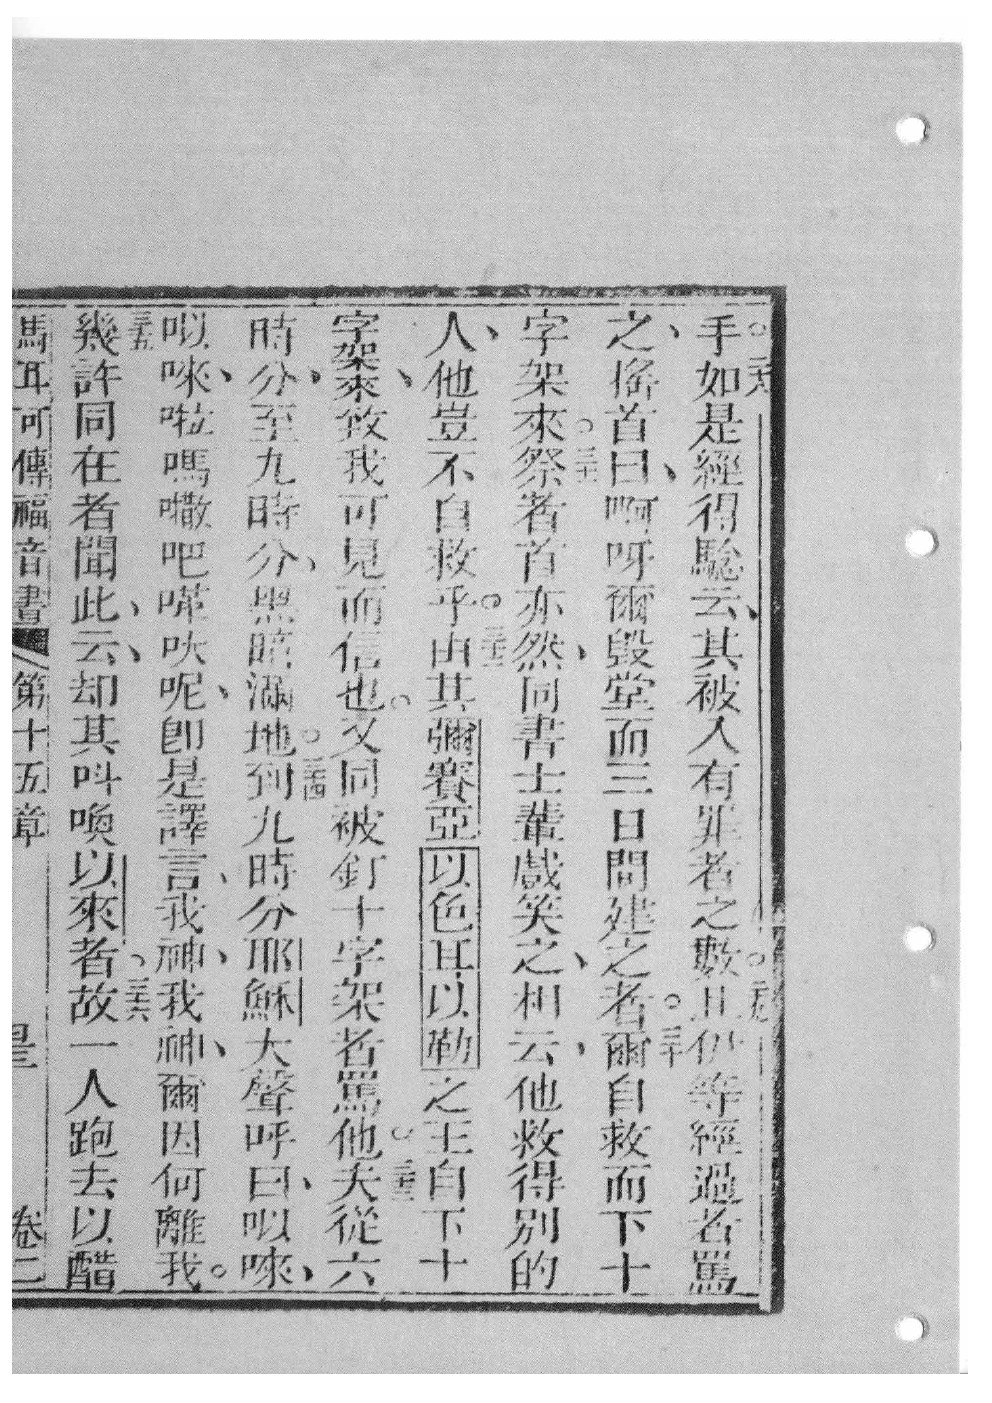 手如是經得驗云、其被人有罪者之數。二九且伊等經過者罵
之、搖首曰、啊呀爾毀堂而三日間建之者。三十爾自救而下十
字架來。三一祭者首亦然、同書士輩戲笑之、相云、他救得別的
人、他豈不自救乎。三二由其彌賽亞以色耳以勒之王自下十
字架來、致我可見而信也。又同被釘十字架者罵他。三三夫從六
時分、至九時分、黑暗滿地。三四到九時分耶穌大聲呼曰、㕽唻、
㕽唻、啦嗎撒吧嗱吠呢、即是譯言、我神、我神、爾因何離我。
三五幾許同在者聞此、云、却其呌喚以來者。三六故一人跑去以醋
馬耳可傳福音書 第十五章 卷二